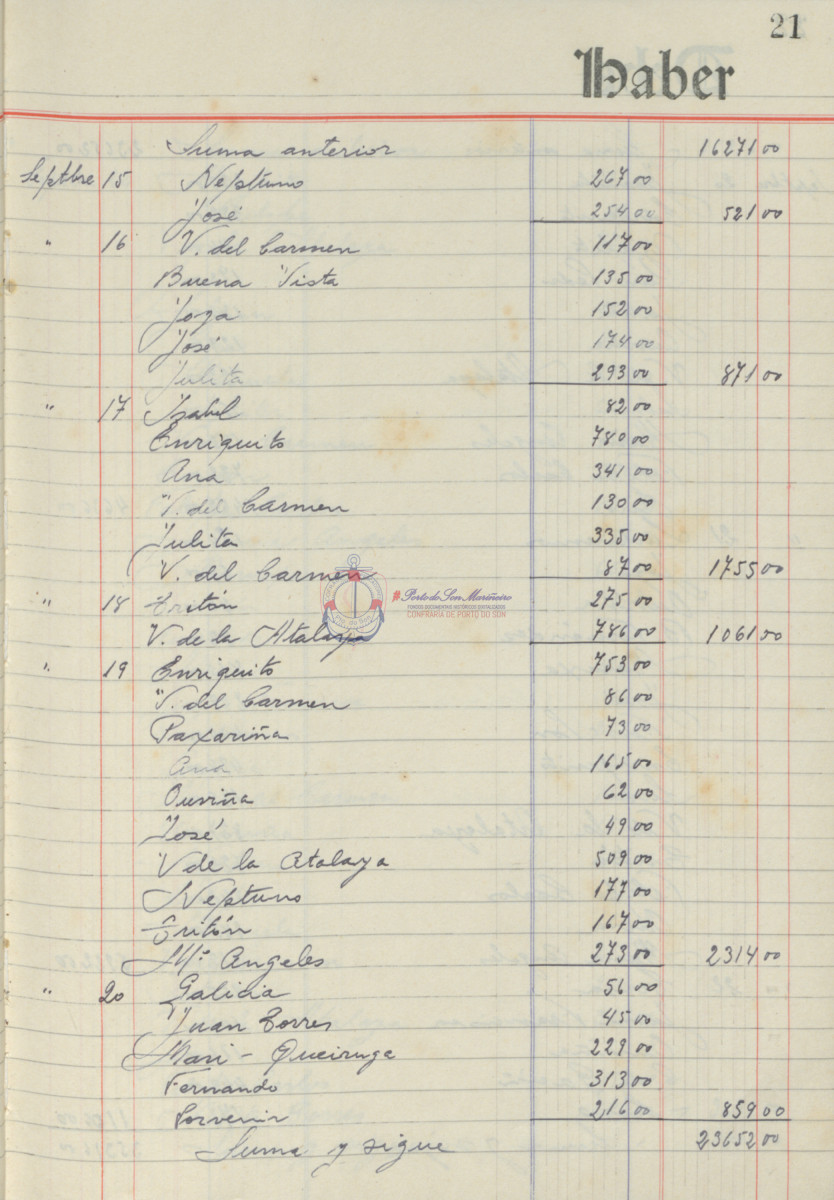 21
Haber
Suma anterior 16271 00
Septbre 15 Neptuno 267 00
José 254 00 521 00
" 16 V. del Carmen 117 00
Buena Vista 135 00
Joya 152 00
José 174 00
Julita 293 00 871 00
" 17 Isabel 82 00
Enriquito 780 00
Ana 341 00
V. del Carmen 130 00
Julita 335 00
V. del Carmen 87 00 1755 00
" 18 Tritón 275 00
Porto do Son Mariñeiro
FONDOS DOCUMENTAIS HISTÓRICOS DIXITALIZADOS
CONFRARÍA DE PORTO DO SON
V. de la Atalaya 786 00 1061 00
" 19 Enriquito 753 00
V. del Carmen 86 00
Paxariña 73 00
Ana 165 00
Ouviña 62 00
José 49 00
V de la Atalaya 509 00
Neptuno 177 00
Tritón 167 00
Mª Angeles 273 00 2314 00
" 20 Galicia 56 00
Juan Torres 45 00
Mari - Queiruga 229 00
Fernando 313 00
Porvenir 216 00 859 00
Suma y sigue 23652 00